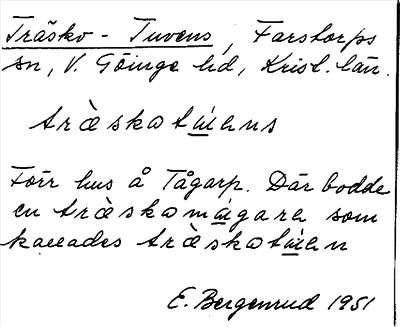 Träsko - Tuvens, Farstorps
sn, V. Göinge hd, Krist. län.
träskotúens
Förr hus å Tågarp. Där bodde
en träskomágare som
kallades träskotúen
E. Bergenrud 1951